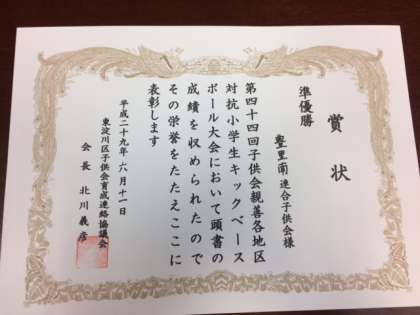 賞状
準優勝
豊里南連合子供会様
第四十四回子供会親善各地区
対抗小学生キックベース
ボール大会において頭書の
成績を収められたので
その栄誉をたたえここに
表彰します
平成二十九年六月十一日
東淀川区子供会育成連絡協議会
会長 北川義彦